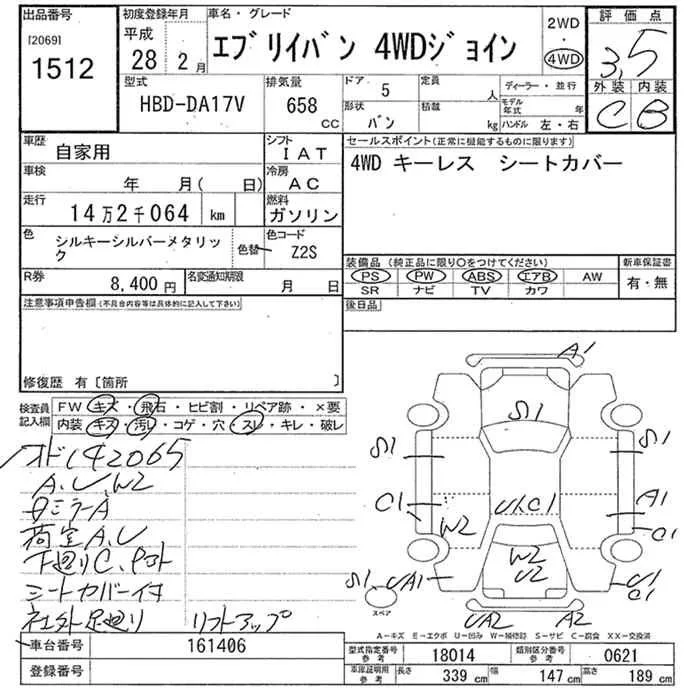 出品番号
[2069]
1512
初度登録年月
平成
28 2月
車名・グレード
エブリイバン 4WDジョイン
2WD
・
4WD
評価点
3,5
外装 内装
C B
型式
HBD-DA17V
排気量
658 CC
ドア 5
形状 バン
定員 人
積載 kg
ディーラー・並行
モデル年式 年
ハンドル 左・右
車歴
自家用
シフト
IAT
車検
年 月( 日)
冷房
AC
走行
14万2千064 km
燃料
ガソリン
色
シルキーシルバーメタリック
色替
色コード
Z2S
R券
8,400 円
名変通知期限
月 日
セールスポイント(正常に機能するものに限ります)
4WD キーレス シートカバー
装備品 (純正品に限り○をつけてください)
新車保証書
PS PW ABS エアB AW
SR ナビ TV カワ
有・無
後日品
注意事項申告欄(不具合内容等は具体的に記入して下さい)
修復歴 有〔箇所 〕
検査員記入欄
FW キズ・飛石・ヒビ割・リペア跡・×要
内装 キズ・汚レ・コゲ・穴・スレ・キレ・破レ
オド142065
A、U、W2
日ミラーA
荷室A、U
下廻りC、P
シートカバー付
社外足廻り リフトアップ
A1
S1
S1
S1
C1
U1、C1
A1
C1
W2
W2
U2
S1
UA1
U1
C1
UA2
A2
スペア
A-キズ E-エクボ U-凹み W-補修跡 S-サビ C-腐食 XX-交換済
車台番号
161406
登録番号
型式指定番号 参考
18014
類別区分番号 参考
0621
車庫証明用 参考
長さ 339 cm
幅 147 cm
高さ 189 cm